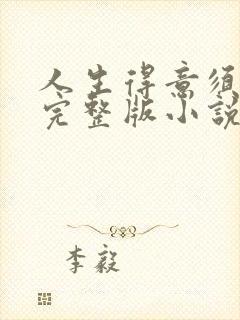 人生得意须
完整版小說
李毅